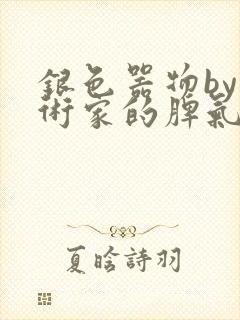 銀色器物by
術家的脾氣
夏晗詩羽